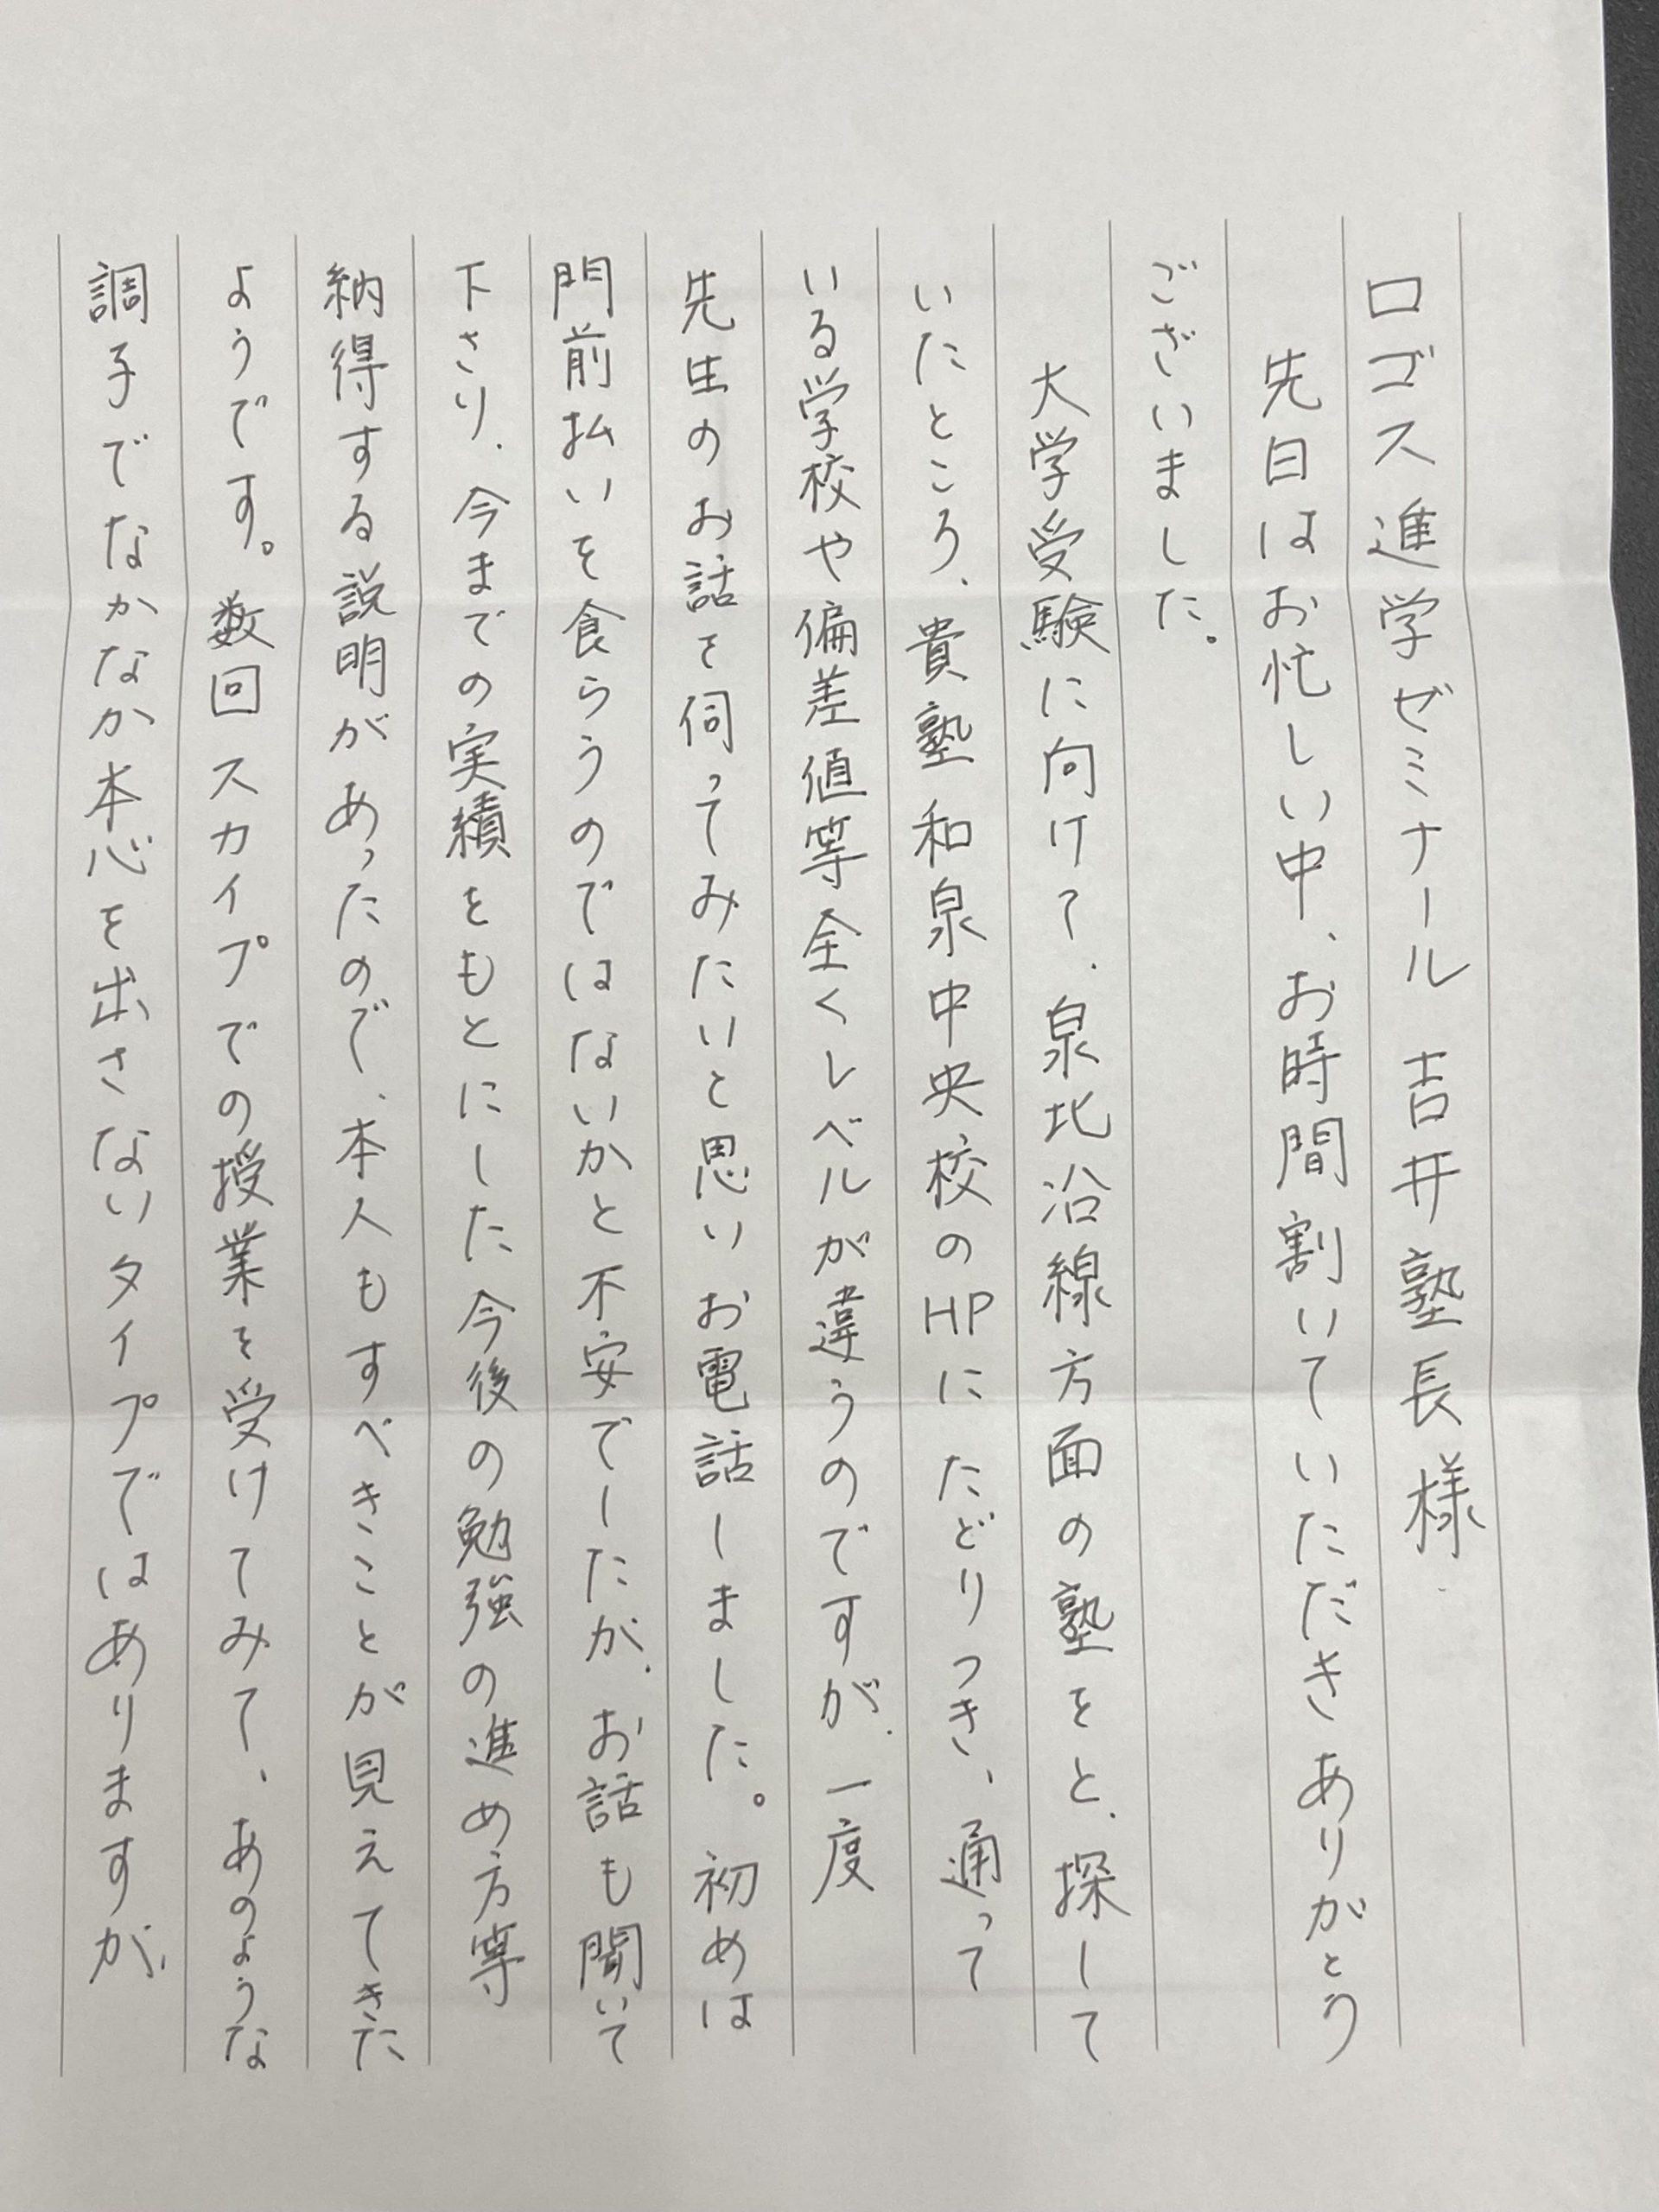 ロゴス進学ゼミナール 吉井塾長様
先日はお忙しい中、お時間割いていただきありがとう
ございました。
大学受験に向けて、泉北沿線方面の塾をと、探して
いたところ、貴塾和泉中央校のHPにたどりつき、通って
いる学校や偏差値等全くレベルが違うのですが、一度
先生のお話を伺ってみたいと思いお電話しました。初めは
門前払いを食らうのではないかと不安でしたが、お話も聞いて
下さり、今までの実績をもとにした今後の勉強の進め方等
納得する説明があったので、本人もすべきことが見えてきた
ようです。数回スカイプでの授業を受けてみて、あのような
調子でなかなか本心を出さないタイプではありますが、